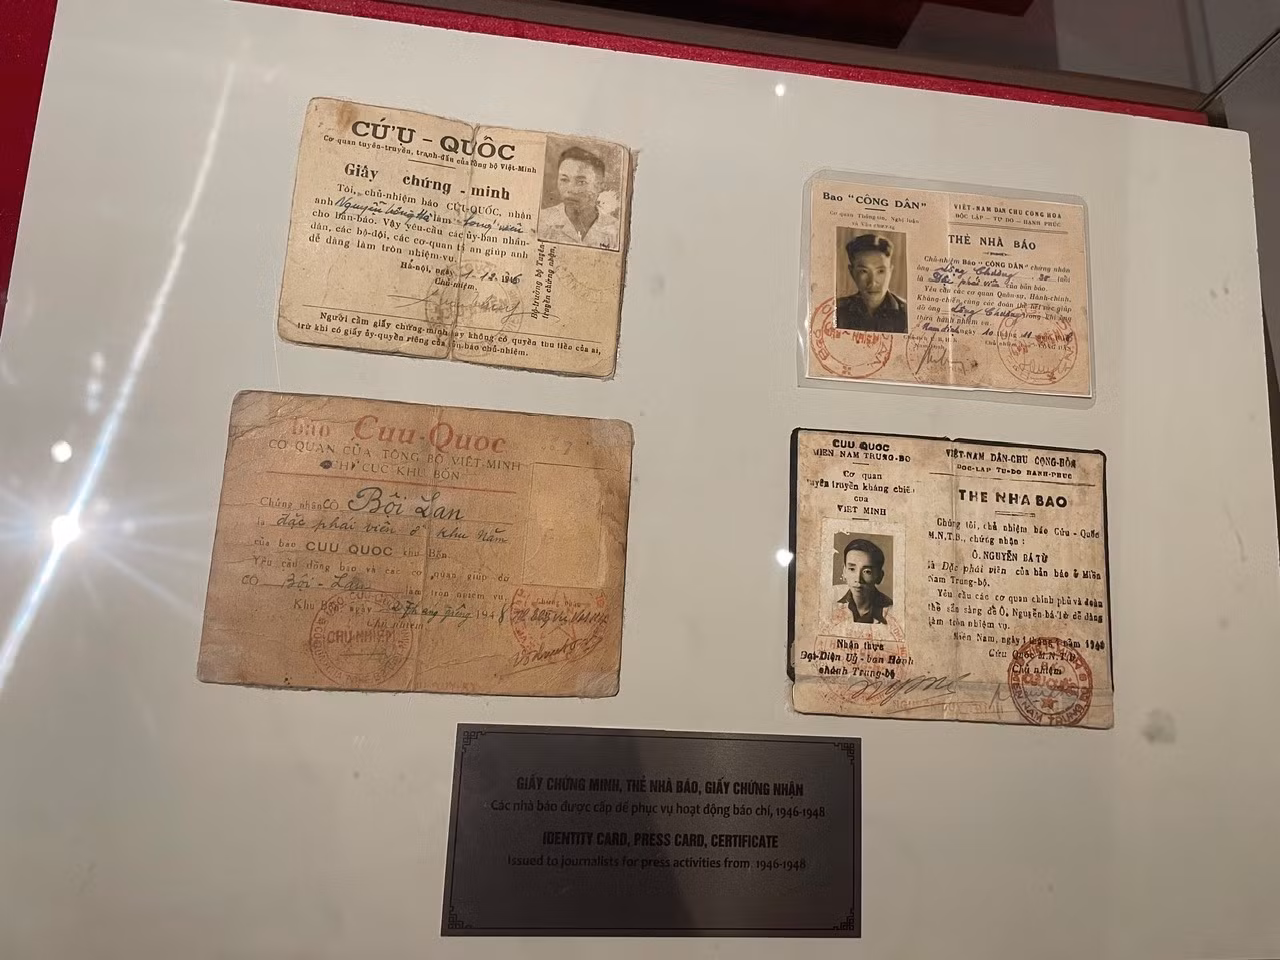 CỨU - QUỐC
Cơ quan tuyên-truyền, tranh-đấu của Tổng bộ Việt-Minh
Giấy chứng - minh
Tôi, chủ-nhiệm báo CỨU-QUỐC, nhận
anh Nguyễn làm
cho bản-báo. Vậy yêu-cầu các ủy-ban nhân-
dân, các bộ-đội, các cơ-quan giúp anh
dễ dàng làm tròn nhiệm-vụ.
Hà-nội, ngày 1-12-1946
Chủ-nhiệm,
Người cầm giấy chứng-minh này không có quyền thu tiền của ai,
trừ khi có giấy ủy-quyền riêng của báo chủ-nhiệm.
Báo "CÔNG DÂN"
Cơ quan Thông-tin, Nghị luận
và Văn
VIỆT-NAM DÂN CHỦ CỘNG HÒA
ĐỘC LẬP - TỰ DO - HẠNH PHÚC
THẺ NHÀ BÁO
Chủ-nhiệm Báo "CÔNG DÂN" chứng nhận
ông
là Đặc phái viên của bản báo.
Yêu cầu các cơ quan Quân-sự, Hành-chính,
Kháng-chiến cùng các đoàn thể hết sức giúp
đỡ ông trong khi ông
thừa hành nhiệm vụ.
báo Cuu-Quoc
CƠ QUAN CỦA TỔNG BỘ VIỆT-MINH
CHI CỤC KHU BỐN
Chứng nhận CÔ Bội Lan
là đặc phái viên ở khu Năm
của báo CUU QUOC khu Bốn.
Yêu cầu đồng bào và các cơ quan giúp đỡ
CÔ Bội - Lan làm tròn nhiệm vụ.
Khu Bốn ngày tháng giêng 1948
Chủ nhiệm
CHỦ NHIỆM
CUU QUOC
MIEN NAM TRUNG-BO
Cơ quan
tuyên truyền kháng chiến
của
VIET MINH
Nhận thực
Đại-Diện Uỷ-ban Hành
chánh Trung-bộ
VIỆT-NAM DÂN-CHỦ CỘNG-HÒA
ĐỘC-LẬP TỰ-DO HẠNH-PHÚC
THẺ NHA BAO
Chúng tôi, chủ nhiệm báo Cứu-Quốc
M.N.T.B., chứng nhận :
Ô. NGUYỄN BÁ TỪ
là Đặc phái viên của bản báo ở Miền
Nam Trung-bộ.
Yêu cầu các cơ quan chính phủ và đoàn
thể sẵn sàng để Ô. Nguyễn-bá-từ dễ dàng
làm tròn nhiệm vụ.
Miền Nam, ngày 1 tháng năm 1948
Cứu Quốc M.N.T.B.
Chủ nhiệm
GIẤY CHỨNG MINH, THẺ NHÀ BÁO, GIẤY CHỨNG NHẬN
Các nhà báo được cấp để phục vụ hoạt động báo chí, 1946-1948
IDENTITY CARD, PRESS CARD, CERTIFICATE
Issued to journalists for press activities from, 1946-1948